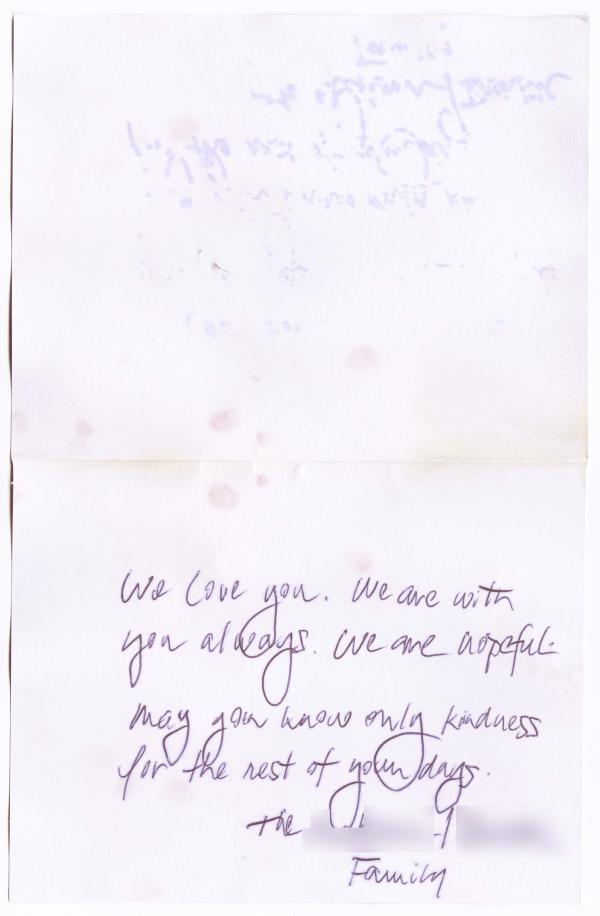 We love you. We are with
you always. We are hopeful.
May you know only kindness
for the rest of your days.
The
Family